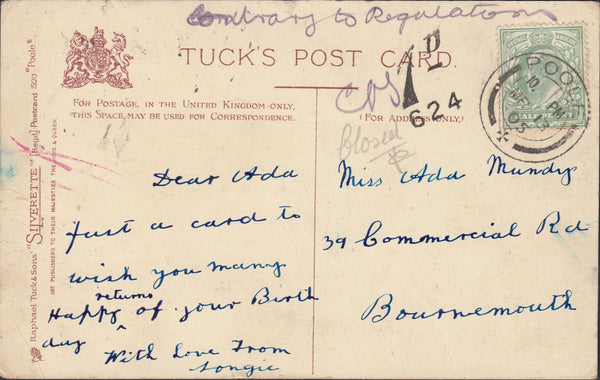 Contrary to Regulations
TUCK'S POST CARD.
FOR POSTAGE, IN THE UNITED KINGDOM ONLY,
THIS SPACE, MAY BE USED FOR CORRESPONDENCE.
(FOR ADDRESS ONLY.)
1D
624
closed
POOLE
PM
03
Raphael Tuck & Sons' "SILVERETTE" [Regd.] Postcard 1520 "Poole"
ART PUBLISHERS TO THEIR MAJESTIES THE KING & QUEEN.
Dear Ada
Just a card to
wish you many
returns
Happy ^ of your Birth
day With Love From
Miss Ada Mundy
39 Commercial Rd
Bournemouth